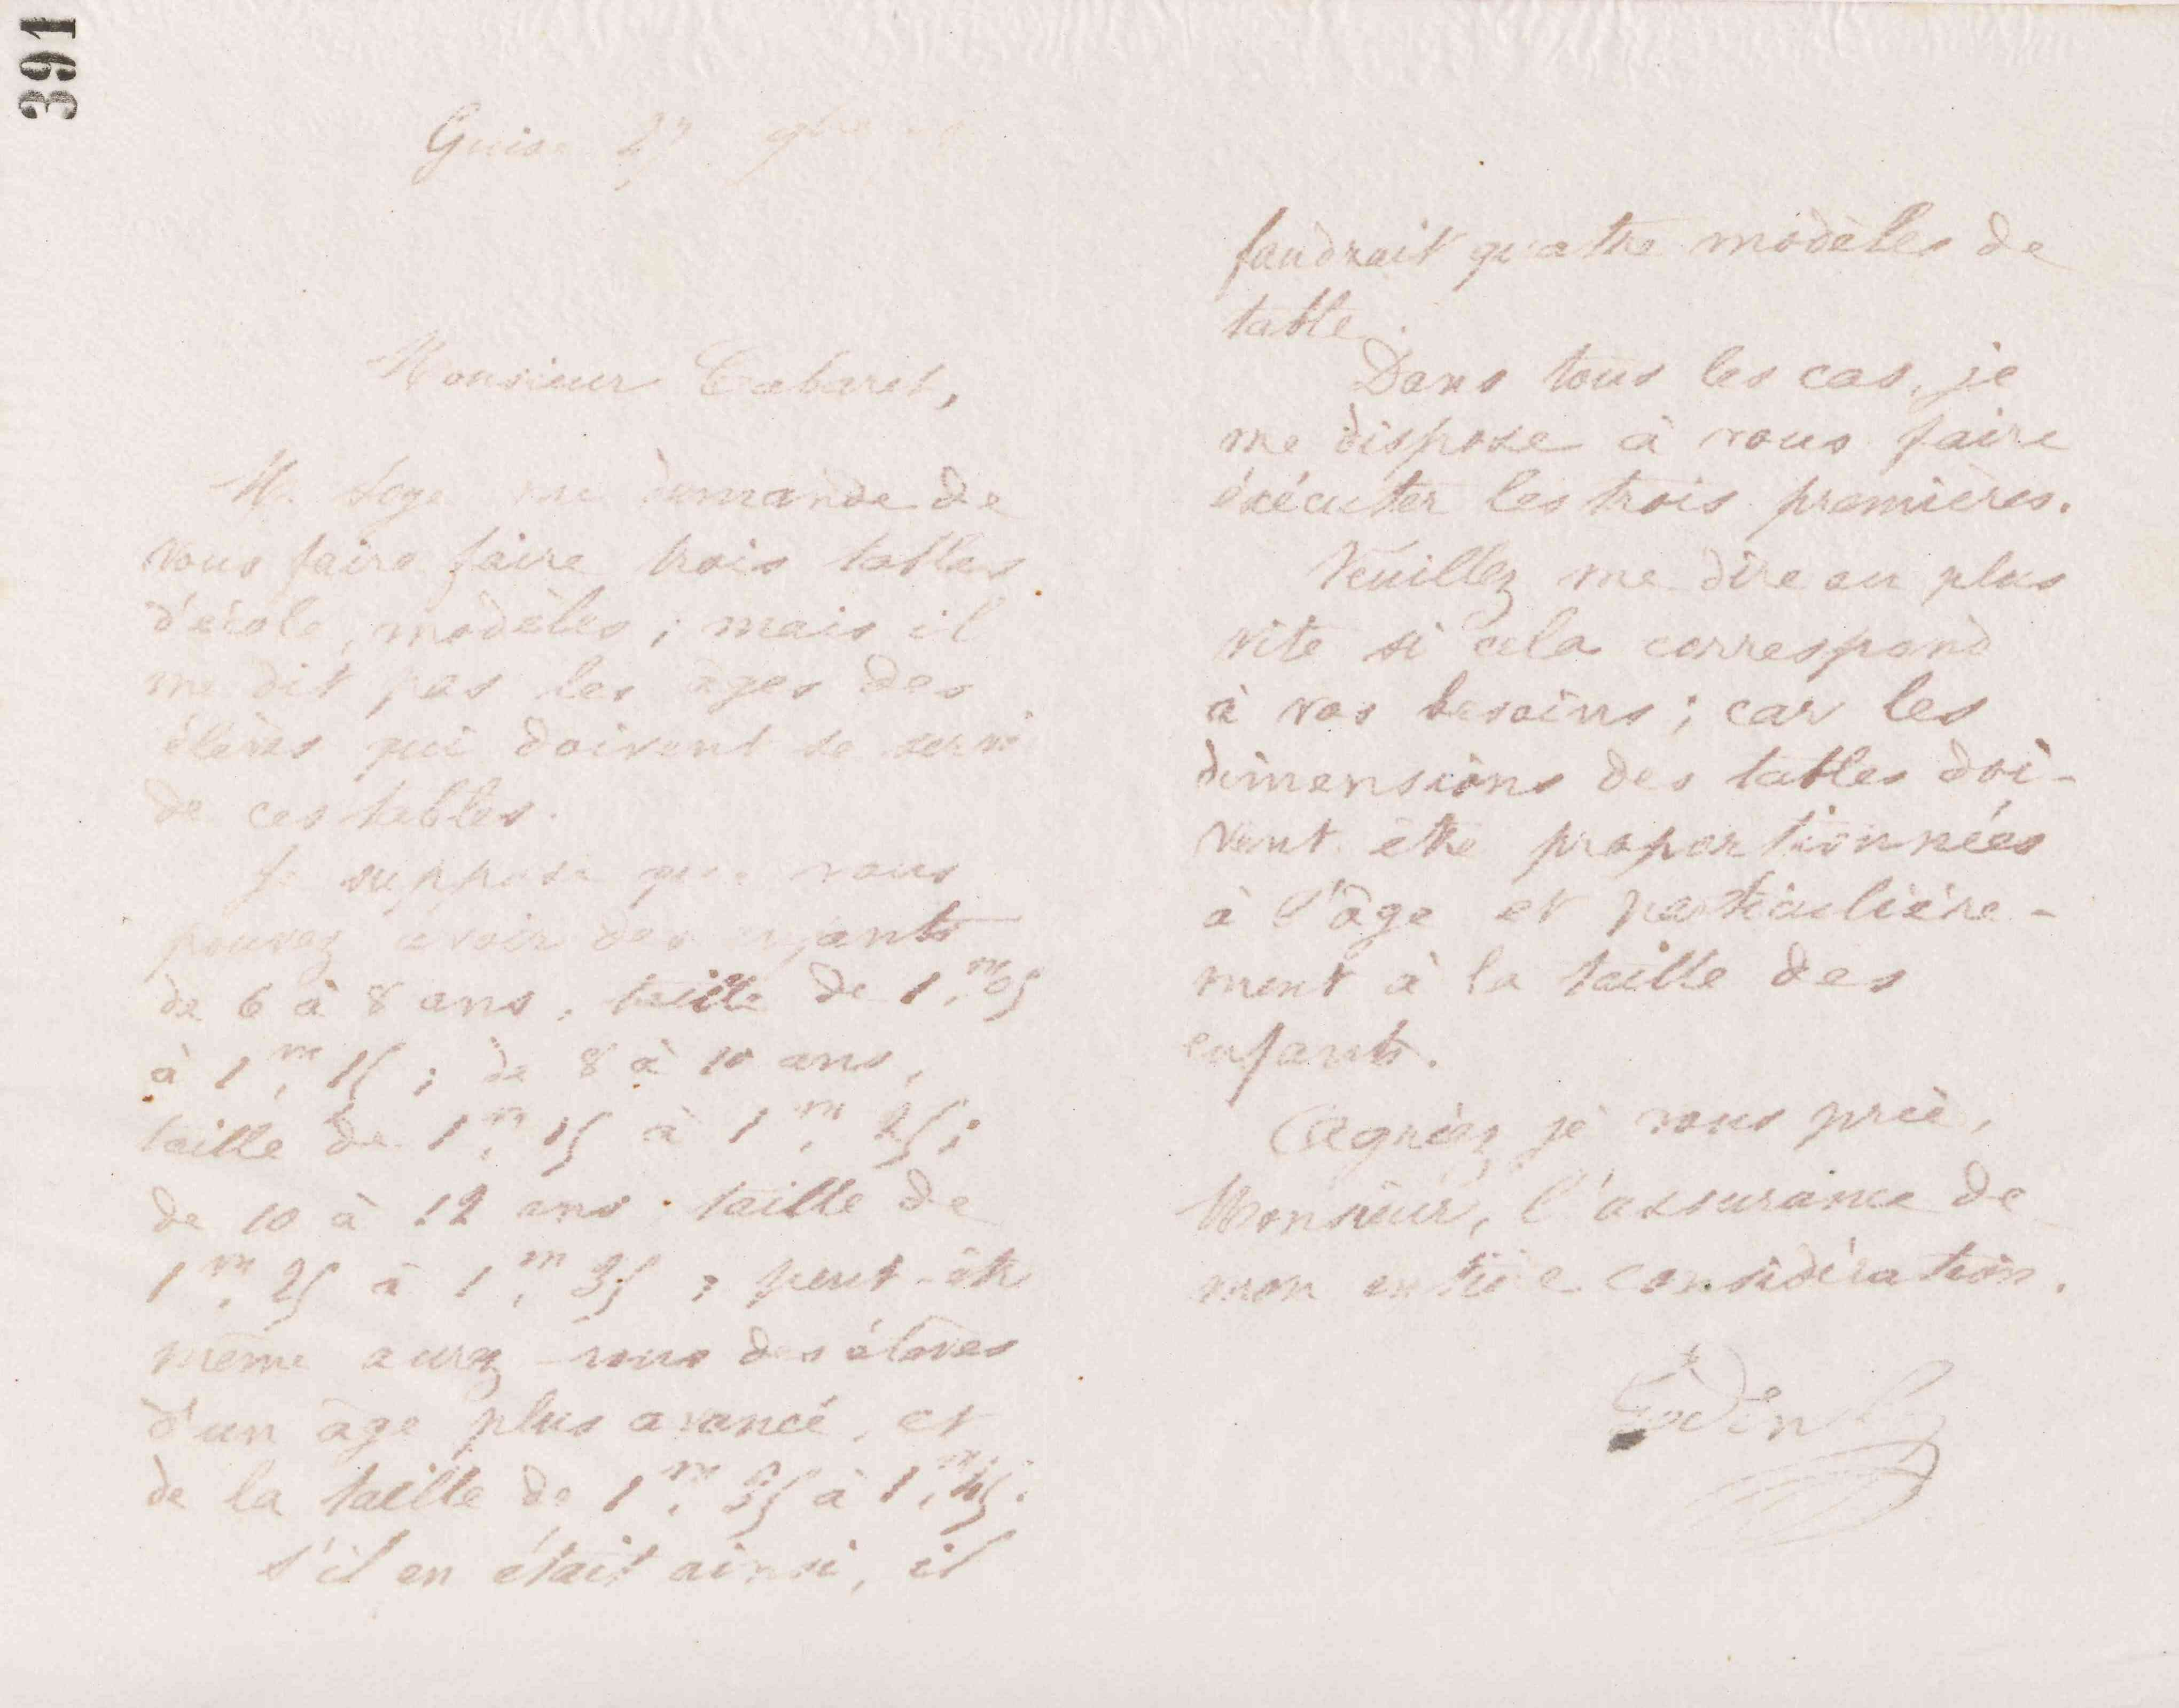 391
Guise 27 9bre
Monsieur Cabaret,
M. me demande de
vous faire faire trois tables
d'école, modèles ; mais il
me dit pas les âges des
élèves qui doivent se servir
de ces tables.
Je suppose que vous
pouvez avoir des enfants
de 6 à 8 ans, taille de 1m,05
à 1m,15 ; de 8 à 10 ans,
taille de 1m,15 à 1m,25 ;
de 10 à 12 ans taille de
1m,25 à 1m,35 ; peut-être
même aurez-vous des élèves
d'un âge plus avancé, et
de la taille de 1m,35 à 1m,45.
S'il en était ainsi, il
faudrait quatre modèles de
table.
Dans tous les cas, je
me dispose à vous faire
éxécuter les trois premières.
Veuillez me dire au plus
vite si cela correspond
à vos besoins ; car les
dimensions des tables doi-
vent être proportionnées
à l'âge et particulière-
ment à la taille des
enfants.
Agréez je vous prie,
Monsieur, l'assurance de
mon entière considération.
Godin